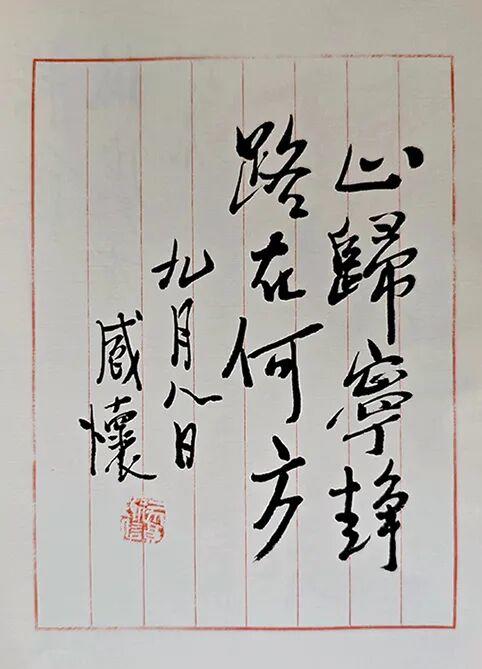 山歸寧静
路在何方
九月八日
感懷